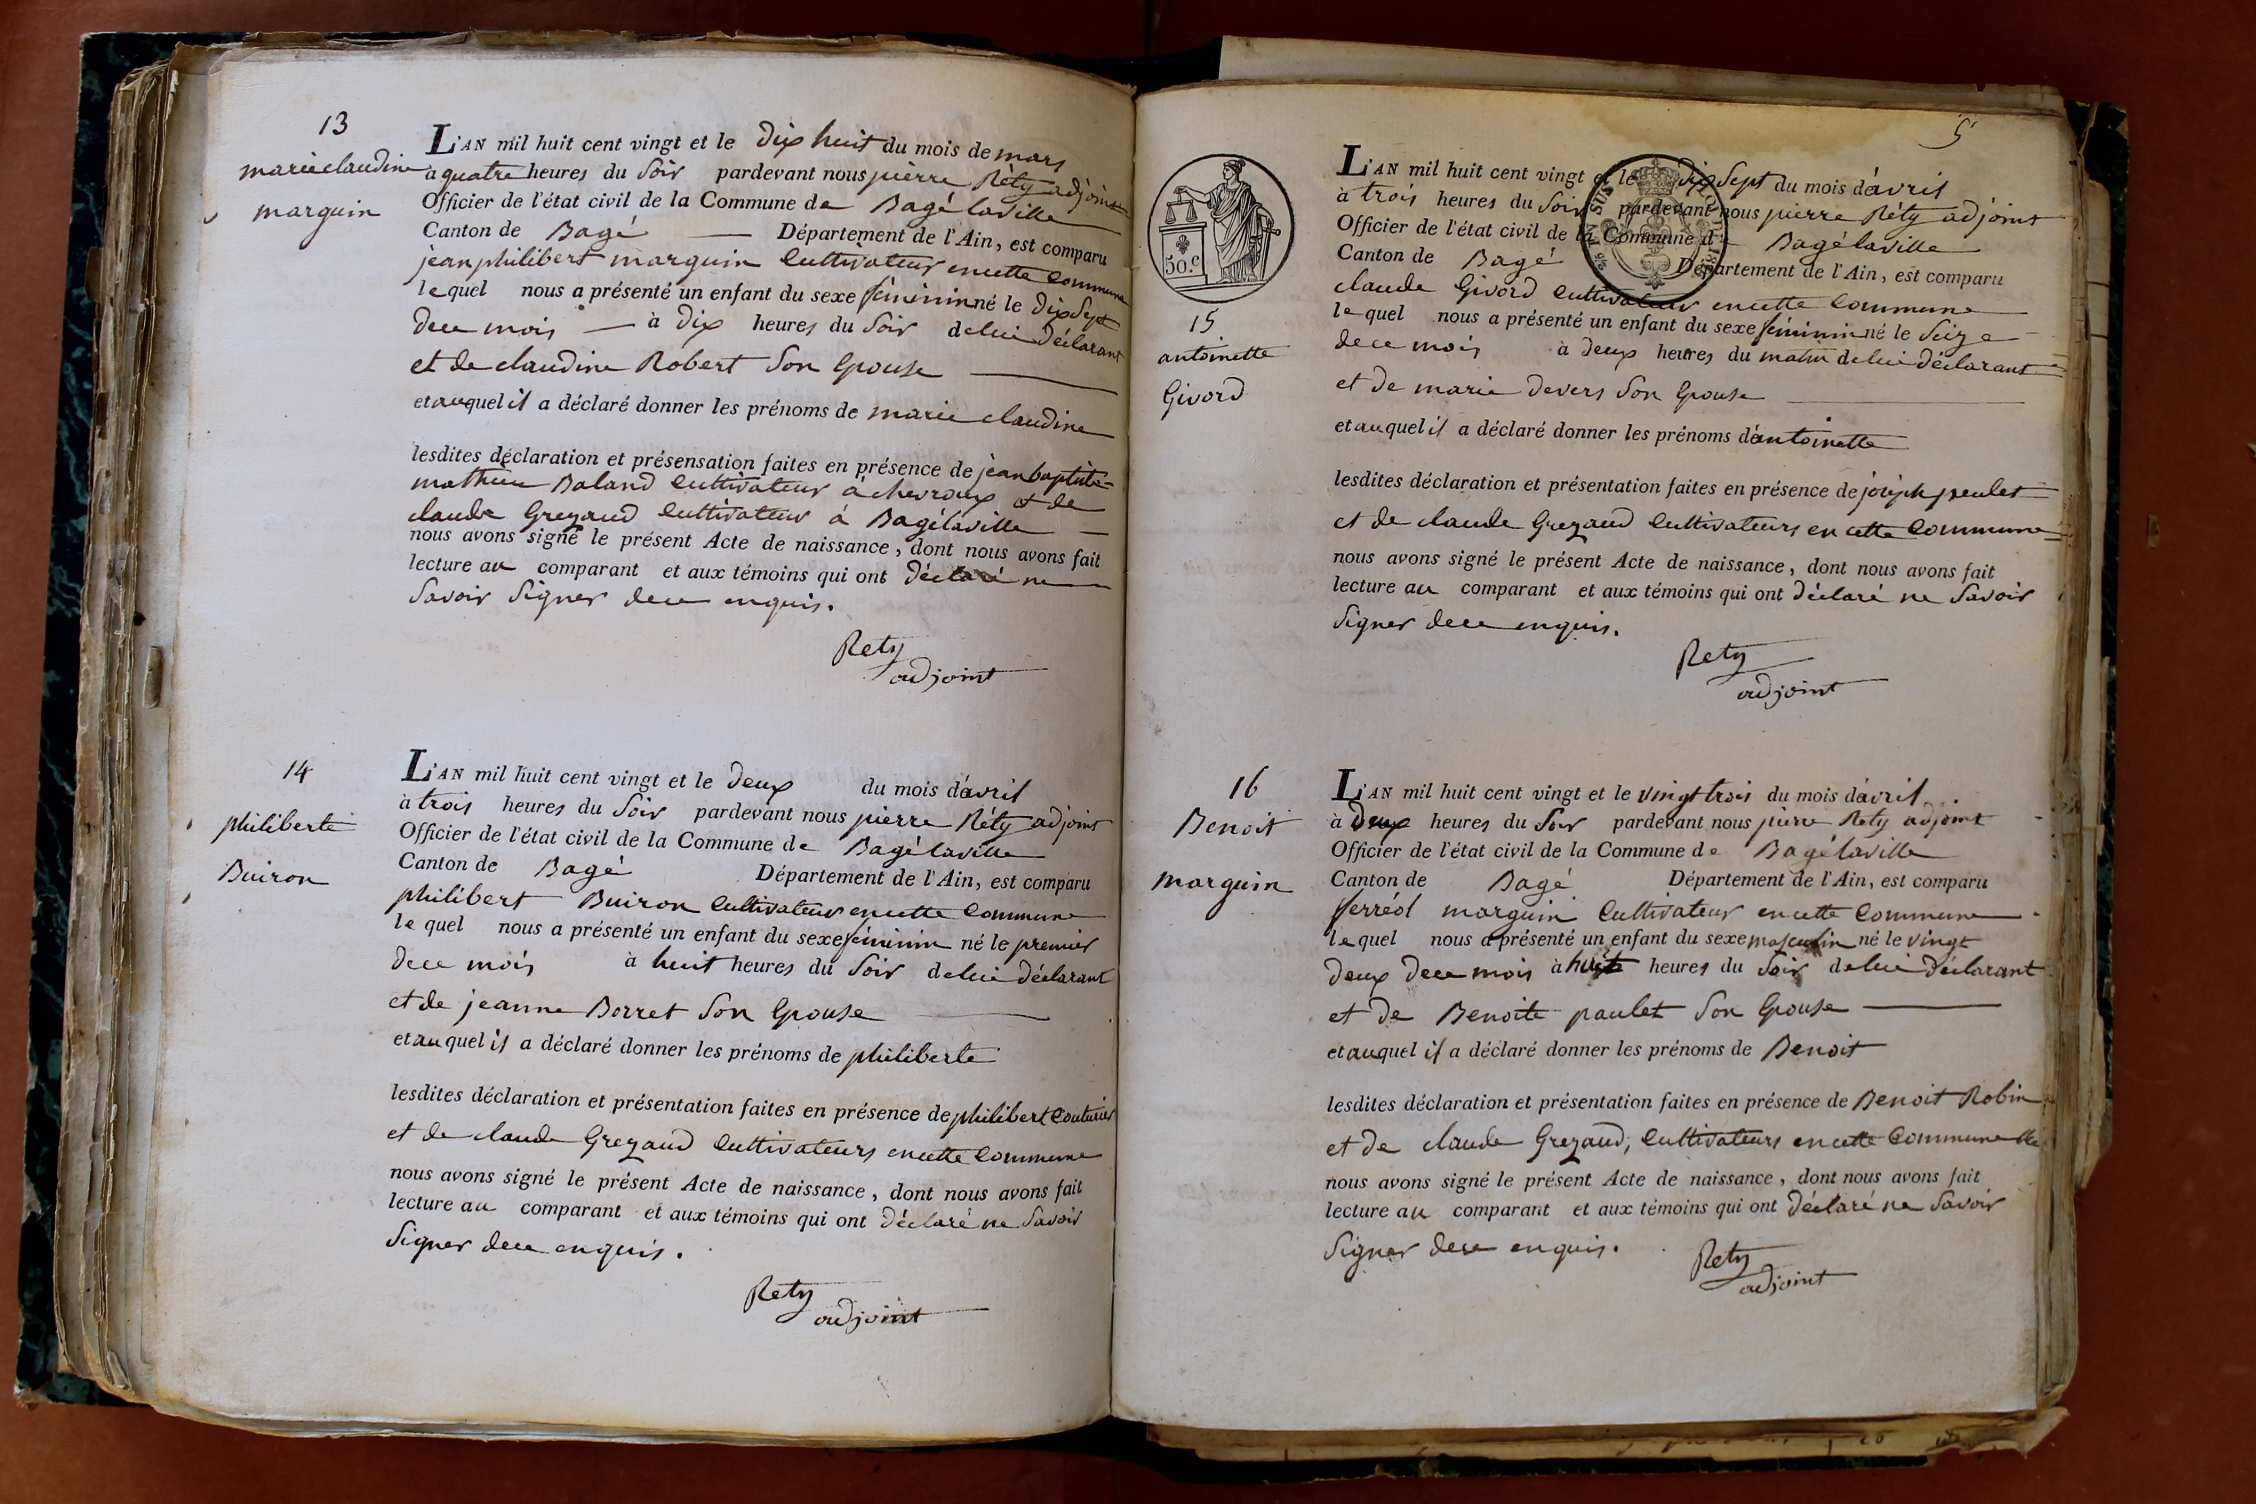 13
marie claudine
marguin
L'AN mil huit cent vingt et le dix huit du mois de mars
à quatre heures du soir pardevant nous pierre Réty adjoint
Officier de l'état civil de la Commune de Bagé laville
Canton de Bagé Département de l'Ain, est comparu
jean philibert marguin Cultivateur en cette Commune
lequel nous a présenté un enfant du sexe féminin né le dix Sept
de ce mois à dix heures du Soir de lui déclarant
et de claudine Robert Son Epouse
et auquel il a déclaré donner les prénoms de marie claudine
lesdites déclaration et présensation faites en présence de jean baptiste
mathieu Baland Cultivateur à chevroux & de
claude Grezaud Cultivateur à Bagé laville
nous avons signé le présent Acte de naissance, dont nous avons fait
lecture au comparant et aux témoins qui ont déclaré ne
Savoir Signer de ce enquis.
Rety
adjoint
14
philiberte
Buiron
L'AN mil huit cent vingt et le deux du mois d'avril
à trois heures du Soir pardevant nous pierre Réty adjoint
Officier de l'état civil de la Commune de Bagé laville
Canton de Bagé Département de l'Ain, est comparu
philibert Buiron Cultivateur en cette Commune
lequel nous a présenté un enfant du sexe féminin né le premier
de ce mois à huit heures du Soir de lui déclarant
et de jeanne Borret Son Epouse
et auquel il a déclaré donner les prénoms de philiberte
lesdites déclaration et présentation faites en présence de philibert Couturier
et de claude Grezaud Cultivateurs en cette Commune
nous avons signé le présent Acte de naissance, dont nous avons fait
lecture au comparant et aux témoins qui ont déclaré ne Savoir
Signer de ce enquis.
Rety
adjoint
5
50.c
15
antoinette
Givord
L'AN mil huit cent vingt et le dix Sept du mois d'avril
à trois heures du Soir pardevant nous pierre Réty adjoint
Officier de l'état civil de la Commune d Bagé laville
Canton de Bagé Département de l'Ain, est comparu
claude Givord Cultivateur en cette Commune
lequel nous a présenté un enfant du sexe féminin né le Seize
de ce mois à deux heures du matin de lui déclarant
et de marie devers Son Epouse
et auquel il a déclaré donner les prénoms d'antoinette
lesdites déclaration et présentation faites en présence de joseph
et de claude Grezaud Cultivateurs en cette Commune
nous avons signé le présent Acte de naissance, dont nous avons fait
lecture au comparant et aux témoins qui ont déclaré ne Savoir
Signer de ce enquis.
Rety
adjoint
16
Benoit
marguin
L'AN mil huit cent vingt et le vingt trois du mois d'avril
à deux heures du Soir pardevant nous pierre Réty adjoint
Officier de l'état civil de la Commune de Bagé laville
Canton de Bagé Département de l'Ain, est comparu
ferréol marguin Cultivateur en cette Commune
lequel nous a présenté un enfant du sexe masculin né le vingt
deux de ce mois à huit heures du Soir de lui déclarant
et de Benoite paulet Son Epouse
et auquel il a déclaré donner les prénoms de Benoit
lesdites déclaration et présentation faites en présence de Benoit Robin
et de claude Grezaud, Cultivateurs en cette Commune
nous avons signé le présent Acte de naissance, dont nous avons fait
lecture au comparant et aux témoins qui ont déclaré ne Savoir
Signer de ce enquis.
Rety
adjoint